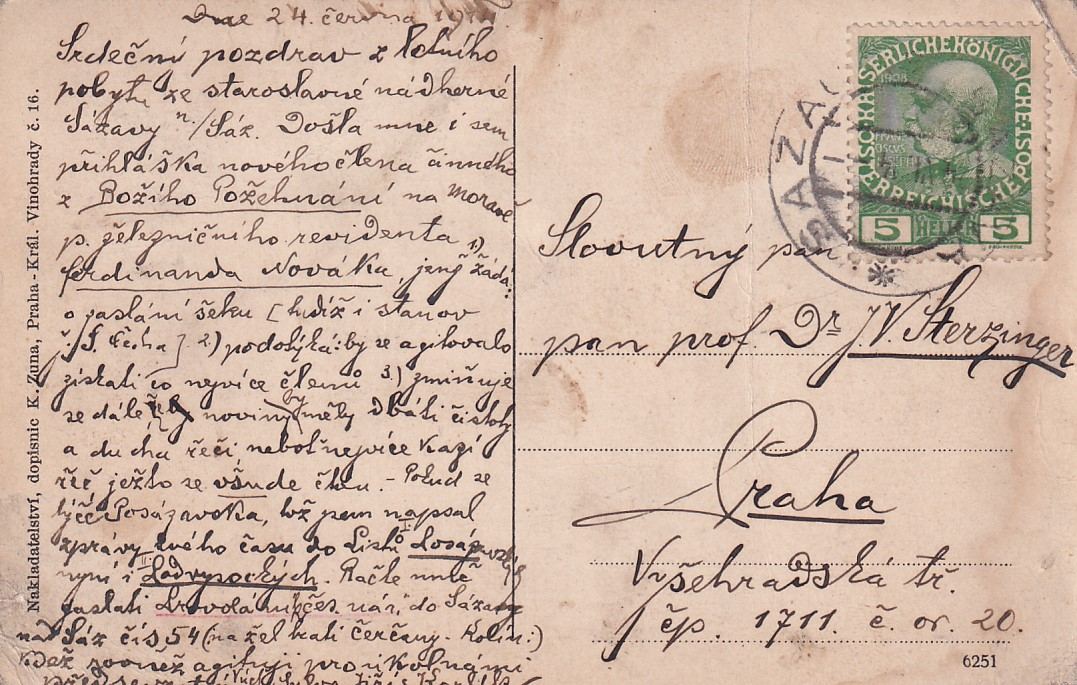 Dne 24. června
Srdečný pozdrav z letního
pobytu ze staroslavné nádherné
Sázavy n./Sáz. Došla mne i sem
přihláška nového člena činného
z Božího Požehnání na Moravě
p. železničního revidenta
Ferdinanda Nováka, jenž žádá: 1)
o zaslání šeku [tudíž i stanov
2) podotýká: by se agitovalo
získati co nejvíce členů 3.) zmiňuje
se dále noviny by měly dbáti čistoty
a ducha řeči, neboť nejvíce kazí
řeč ježto se všude čtou. - Pokud se
týče Posázavska, též jsem napsal
zprávy svého času do Listů Posázavských
nyní i Podvysockých. Račte mně
zaslati nár. do Sázavy
nad Sáz čís 54 (na želtrati Čerčany - Kolín:)
též rovněž agituji pro
Slovutný pan
pan prof. Dr. J V. Sterzinger
Praha
Vyšehradská tř.
čp. 1711. č. or. 20.
6251
Nakladatelství, dopisnic K. Zuna, Praha-Král. Vinohrady č. 16.
KAISERLICHE KÖNIGLICHE
ÖSTERREICHISCHE POST
1908
5 HELLER 5
SÁZA